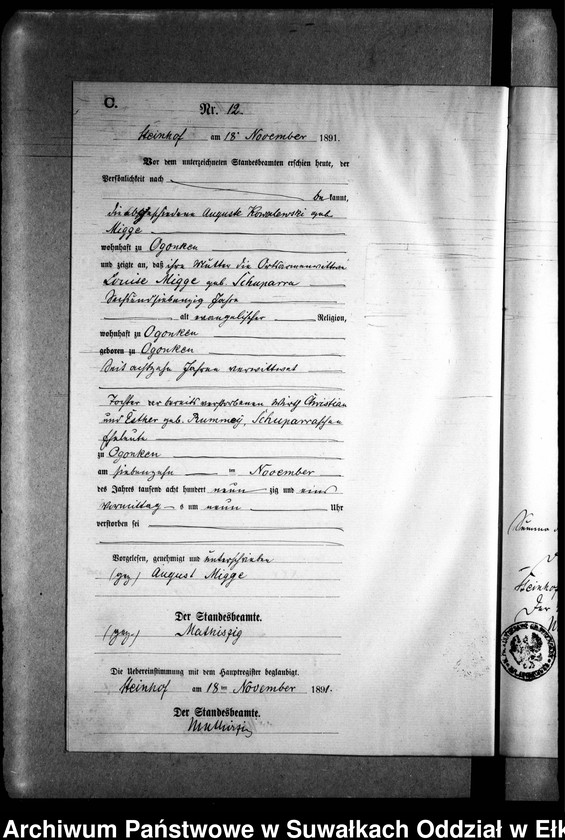 C.
Nr. 12.
Steinhof am 18ten November 1891.
Vor dem unterzeichneten Standesbeamten erschien heute, der
Persönlichkeit nach
be kannt,
die Auguste Kowalewski geb.
Migge
wohnhaft zu Ogonken
und zeigte an, daß ihre Mutter die Ortsarmenwittwe
Louise Migge geb. Schuparra
Sechsundsiebenzig Jahre
alt evangelischer Religion,
wohnhaft zu Ogonken
geboren zu Ogonken
seit achtzehn Jahren verwittwet
Tochter der bereits verstorbenen Wirth Christian
und Esther geb. Schuparraschen
Eheleute
zu Ogonken
am siebenzehn ten November
des Jahres tausend acht hundert neun zig und eins
Vormittag s um neun Uhr
verstorben sei
Vorgelesen, genehmigt und unterschrieben
(gez) August Migge
Der Standesbeamte.
(gez.) Mathiszig
Die Uebereinstimmung mit dem Hauptregister beglaubigt.
Steinhof am 18ten November 1891.
Der Standesbeamte.
Mathiszig
Steinhof
Der
Archiwum Państwowe w Suwałkach Oddział w Ełk